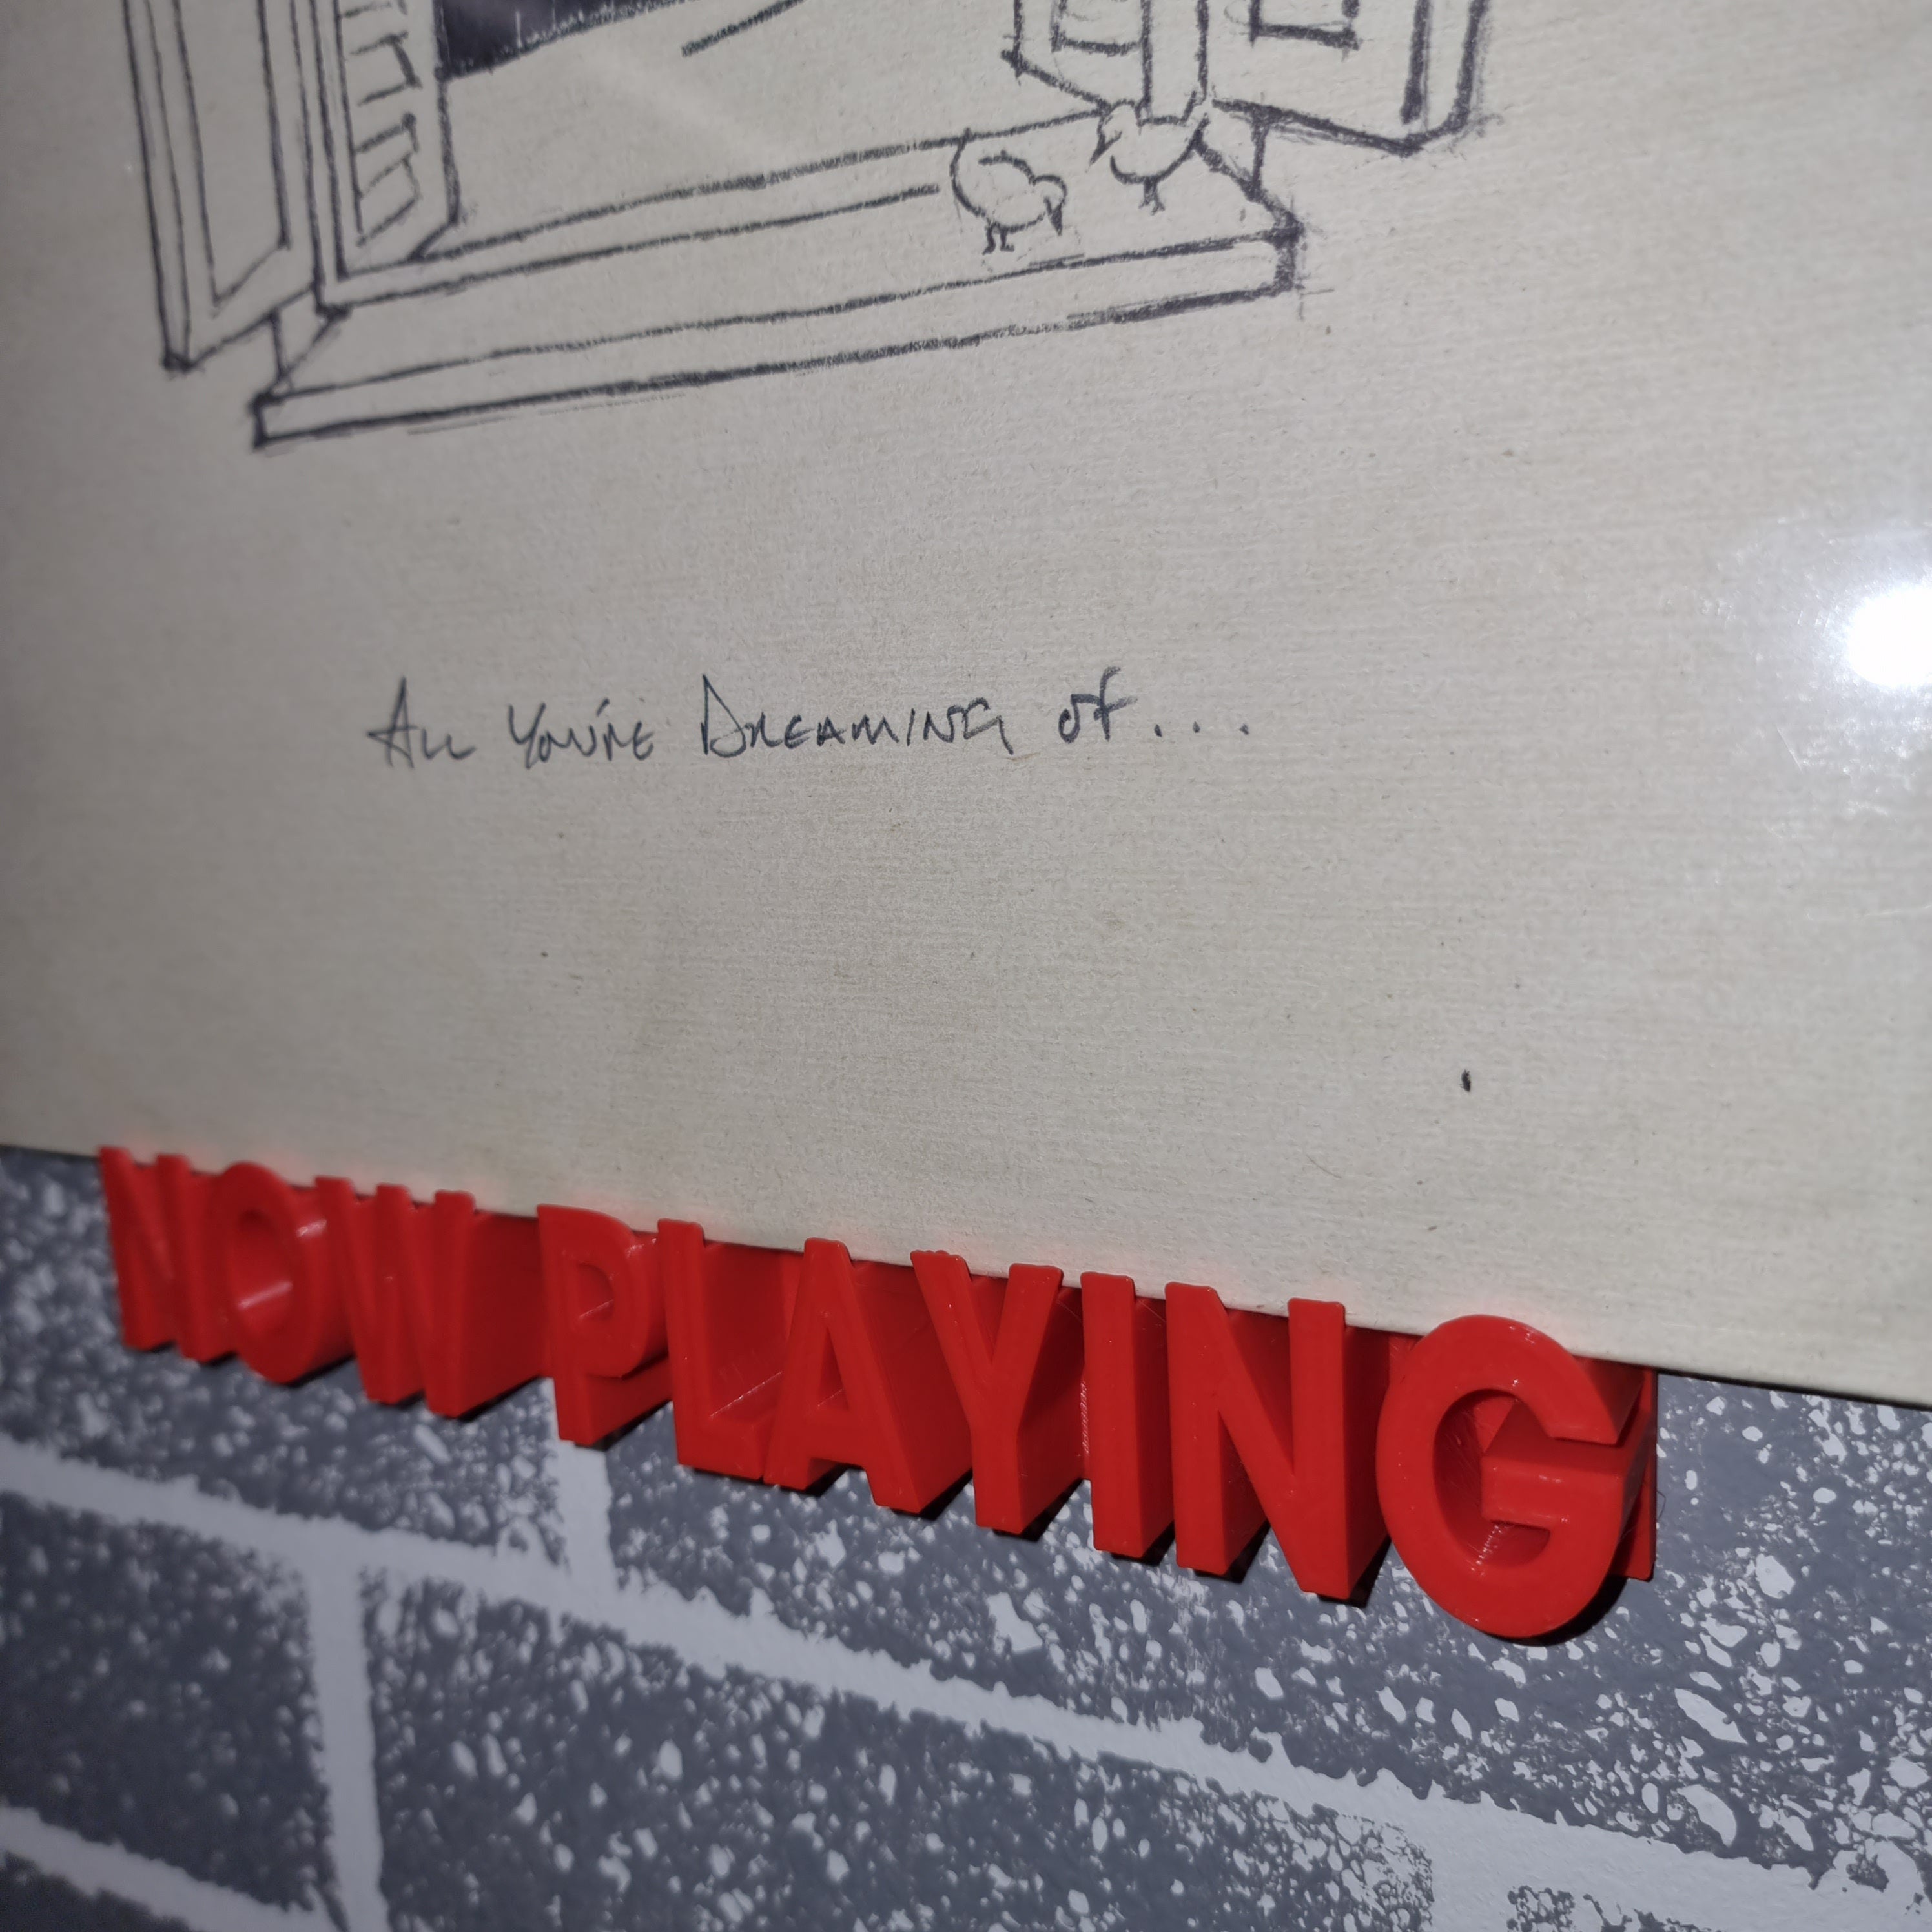 All You're Dreaming of....
NOW PLAYING